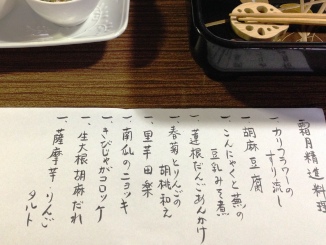 霜月精進料理
一、カリフラワーの
すり流し
一、胡麻豆腐
一、こんにゃくと蕪の
豆乳みそ煮
一、蓮根だんごあんかけ
一、春菊とりんごの
胡桃和え
一、里芋田楽
一、南瓜のニョッキ
一、きびじゃがコロッケ
一、生大根胡麻だれ
一、薩摩芋・りんご
タルト